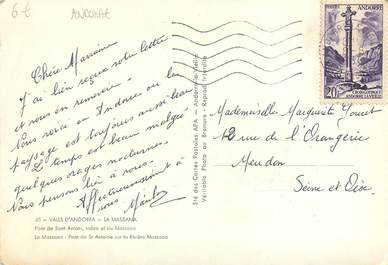 6€ ANDORRE
Chère Marraine
J'ai bien reçu votre lettre
et vous en remercie.
Nous voici en Andorre ou le
paysage est toujours aussi beau
Le temps est beau malgré
quelques orages nocturnes.
Nous pensons bien à vous.
Affectueusement à
vous
40 - VALLS D'ANDORRA - LA MASSANA
Pont de Sant Antoni, sobre el riu Massana
La Massana - Pont de St Antoine sur la Rivière Massana
Sté des Cartes Postales APA - Andorra-la-Vella
Véritable Photo au Bromure - Reprod. Interdite
POSTES ANDORRE
20F
ANDORRE LA VIEILLE
Mademoiselle Marguerite
12 rue de l'Orangerie
Meudon
Seine et Oise